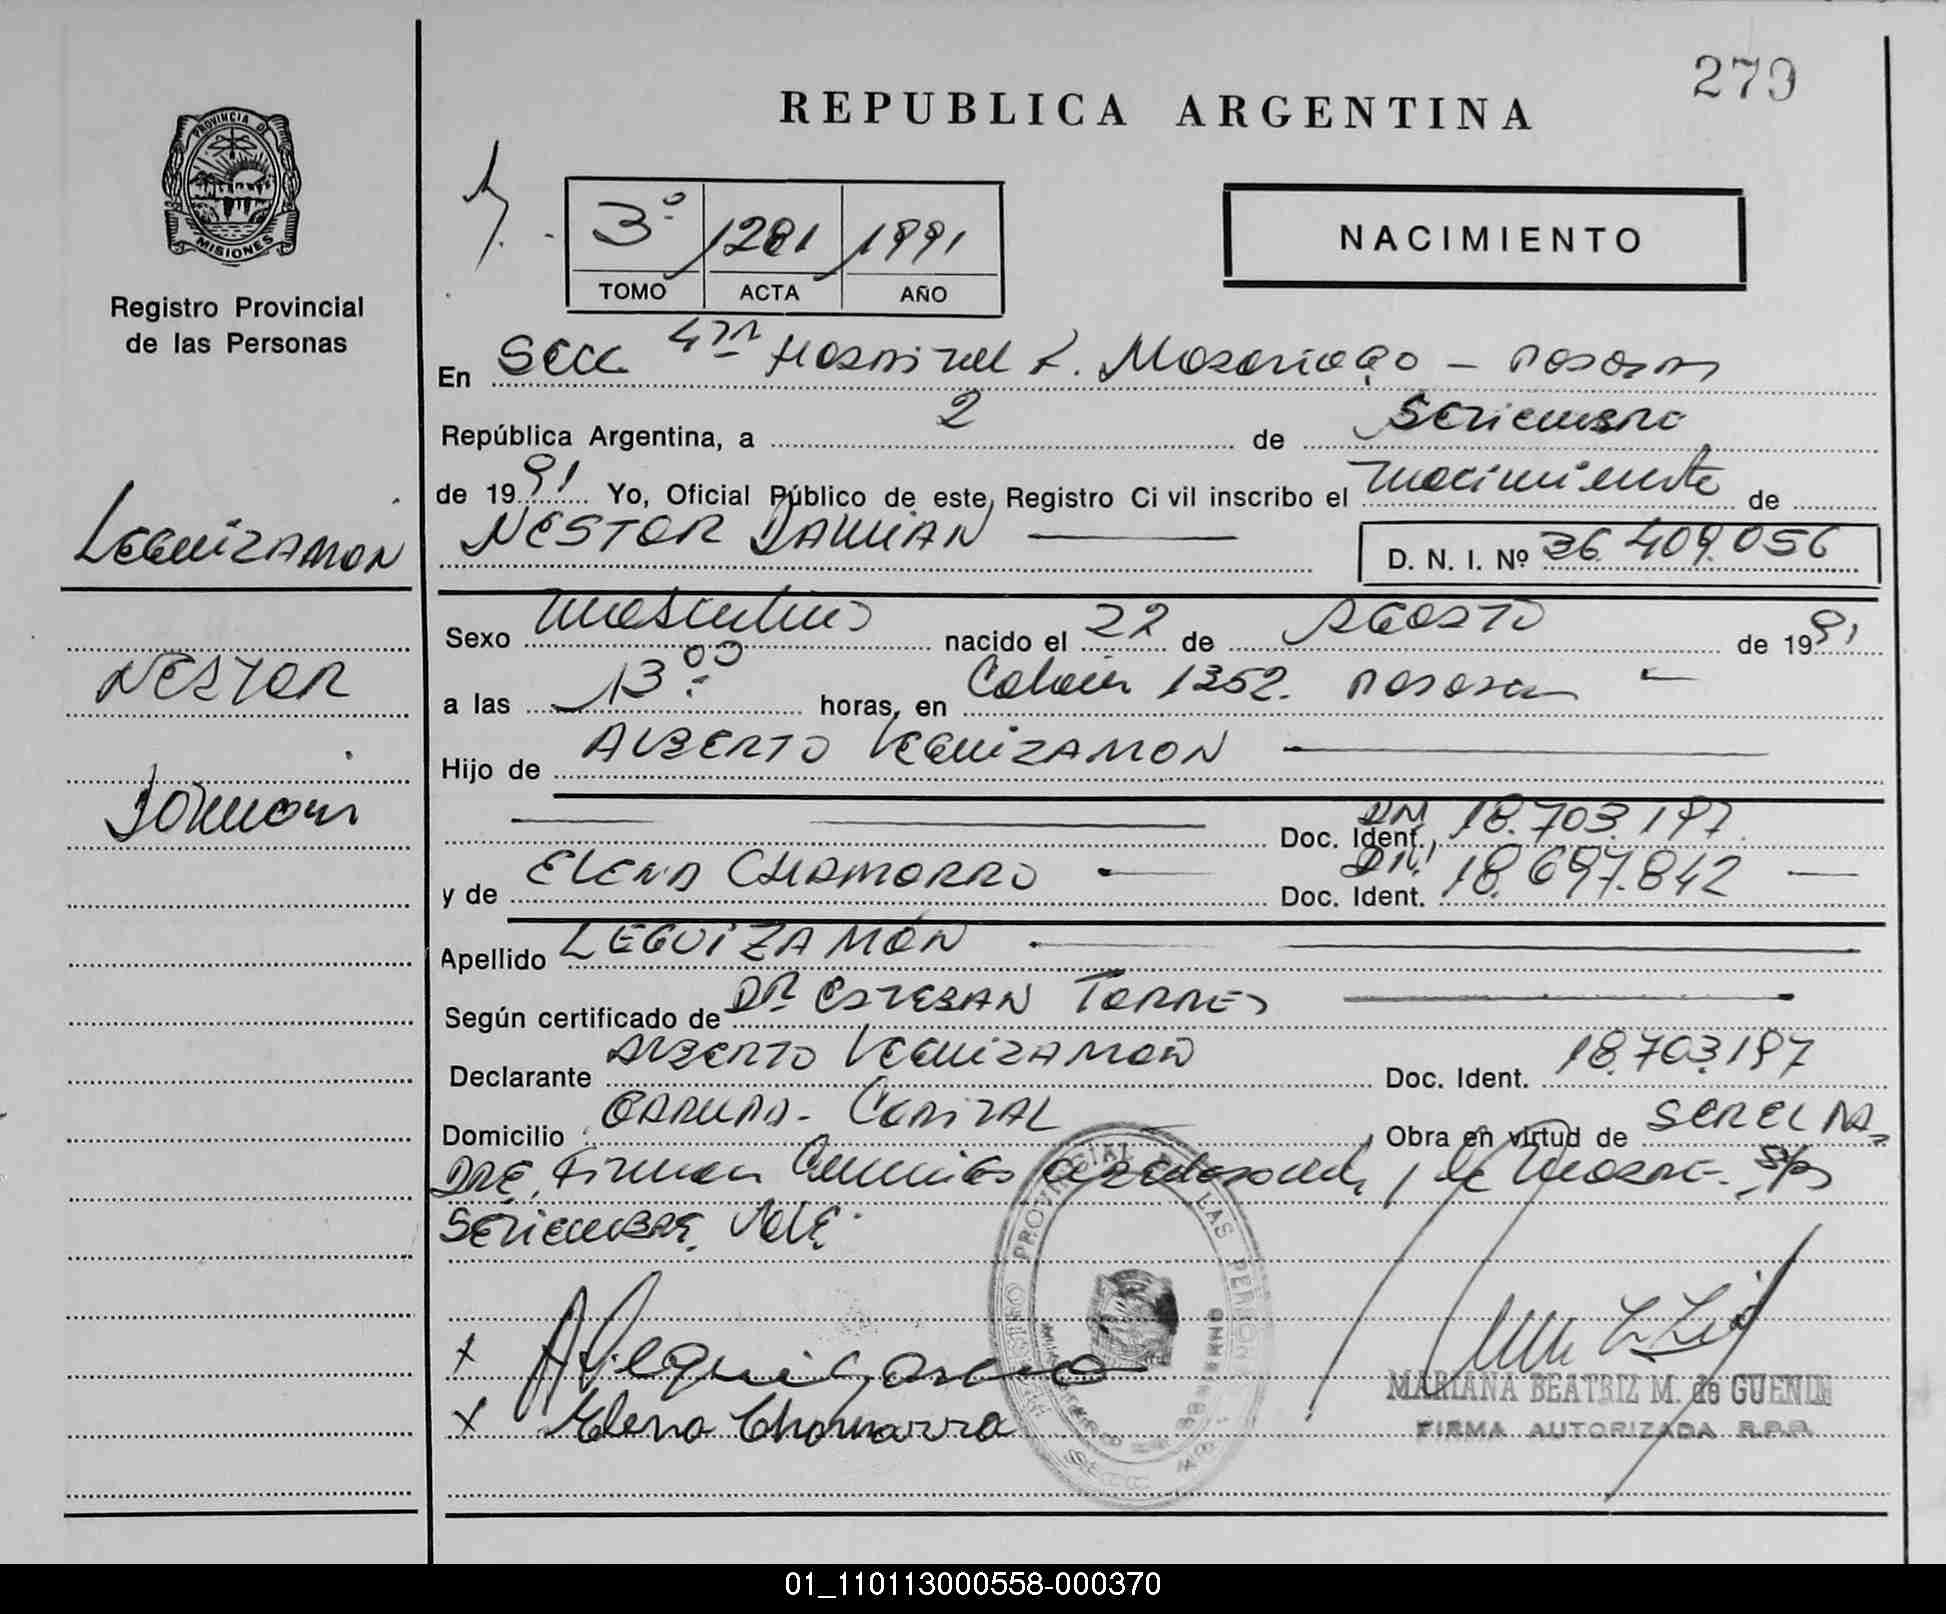 279
REPUBLICA ARGENTINA
PROVINCIA DE
MISIONES
Registro Provincial
de las Personas
3º 1281 1991
TOMO ACTA AÑO
NACIMIENTO
En Secc 4ta Hospital R. Madariaga - Posadas
República Argentina, a 2 de Setiembre
de 1991 Yo, Oficial Público de este Registro Civil inscribo el nacimiento de
NESTOR DAMIAN
D. N. I. Nº 36.409.056
LEGUIZAMON
NESTOR
Damian
Sexo masculino nacido el 22 de AGOSTO de 1991
a las 13:00 horas, en Colón 1352. Posadas
Hijo de ALBERTO LEGUIZAMON
Doc. Ident. DNI 18.703.197
y de ELENA CHAMORRO Doc. Ident. DNI 18.697.842
Apellido LEGUIZAMÓN
Según certificado de DR ESTEBAN TORRES
Declarante ALBERTO LEGUIZAMON Doc. Ident. 18.703.197
Domicilio GARUPA - CAPITAL Obra en virtud de SER EL PA-
DRE, Firman la madre S/R
SETIEMBRE VALE.
x A Leguizamon
x Elena Chamorro
REGISTRO PROVINCIAL DE LAS PERSONAS
MARIANA BEATRIZ M. de GUENIN
FIRMA AUTORIZADA R.P.P.
01_110113000558-000370